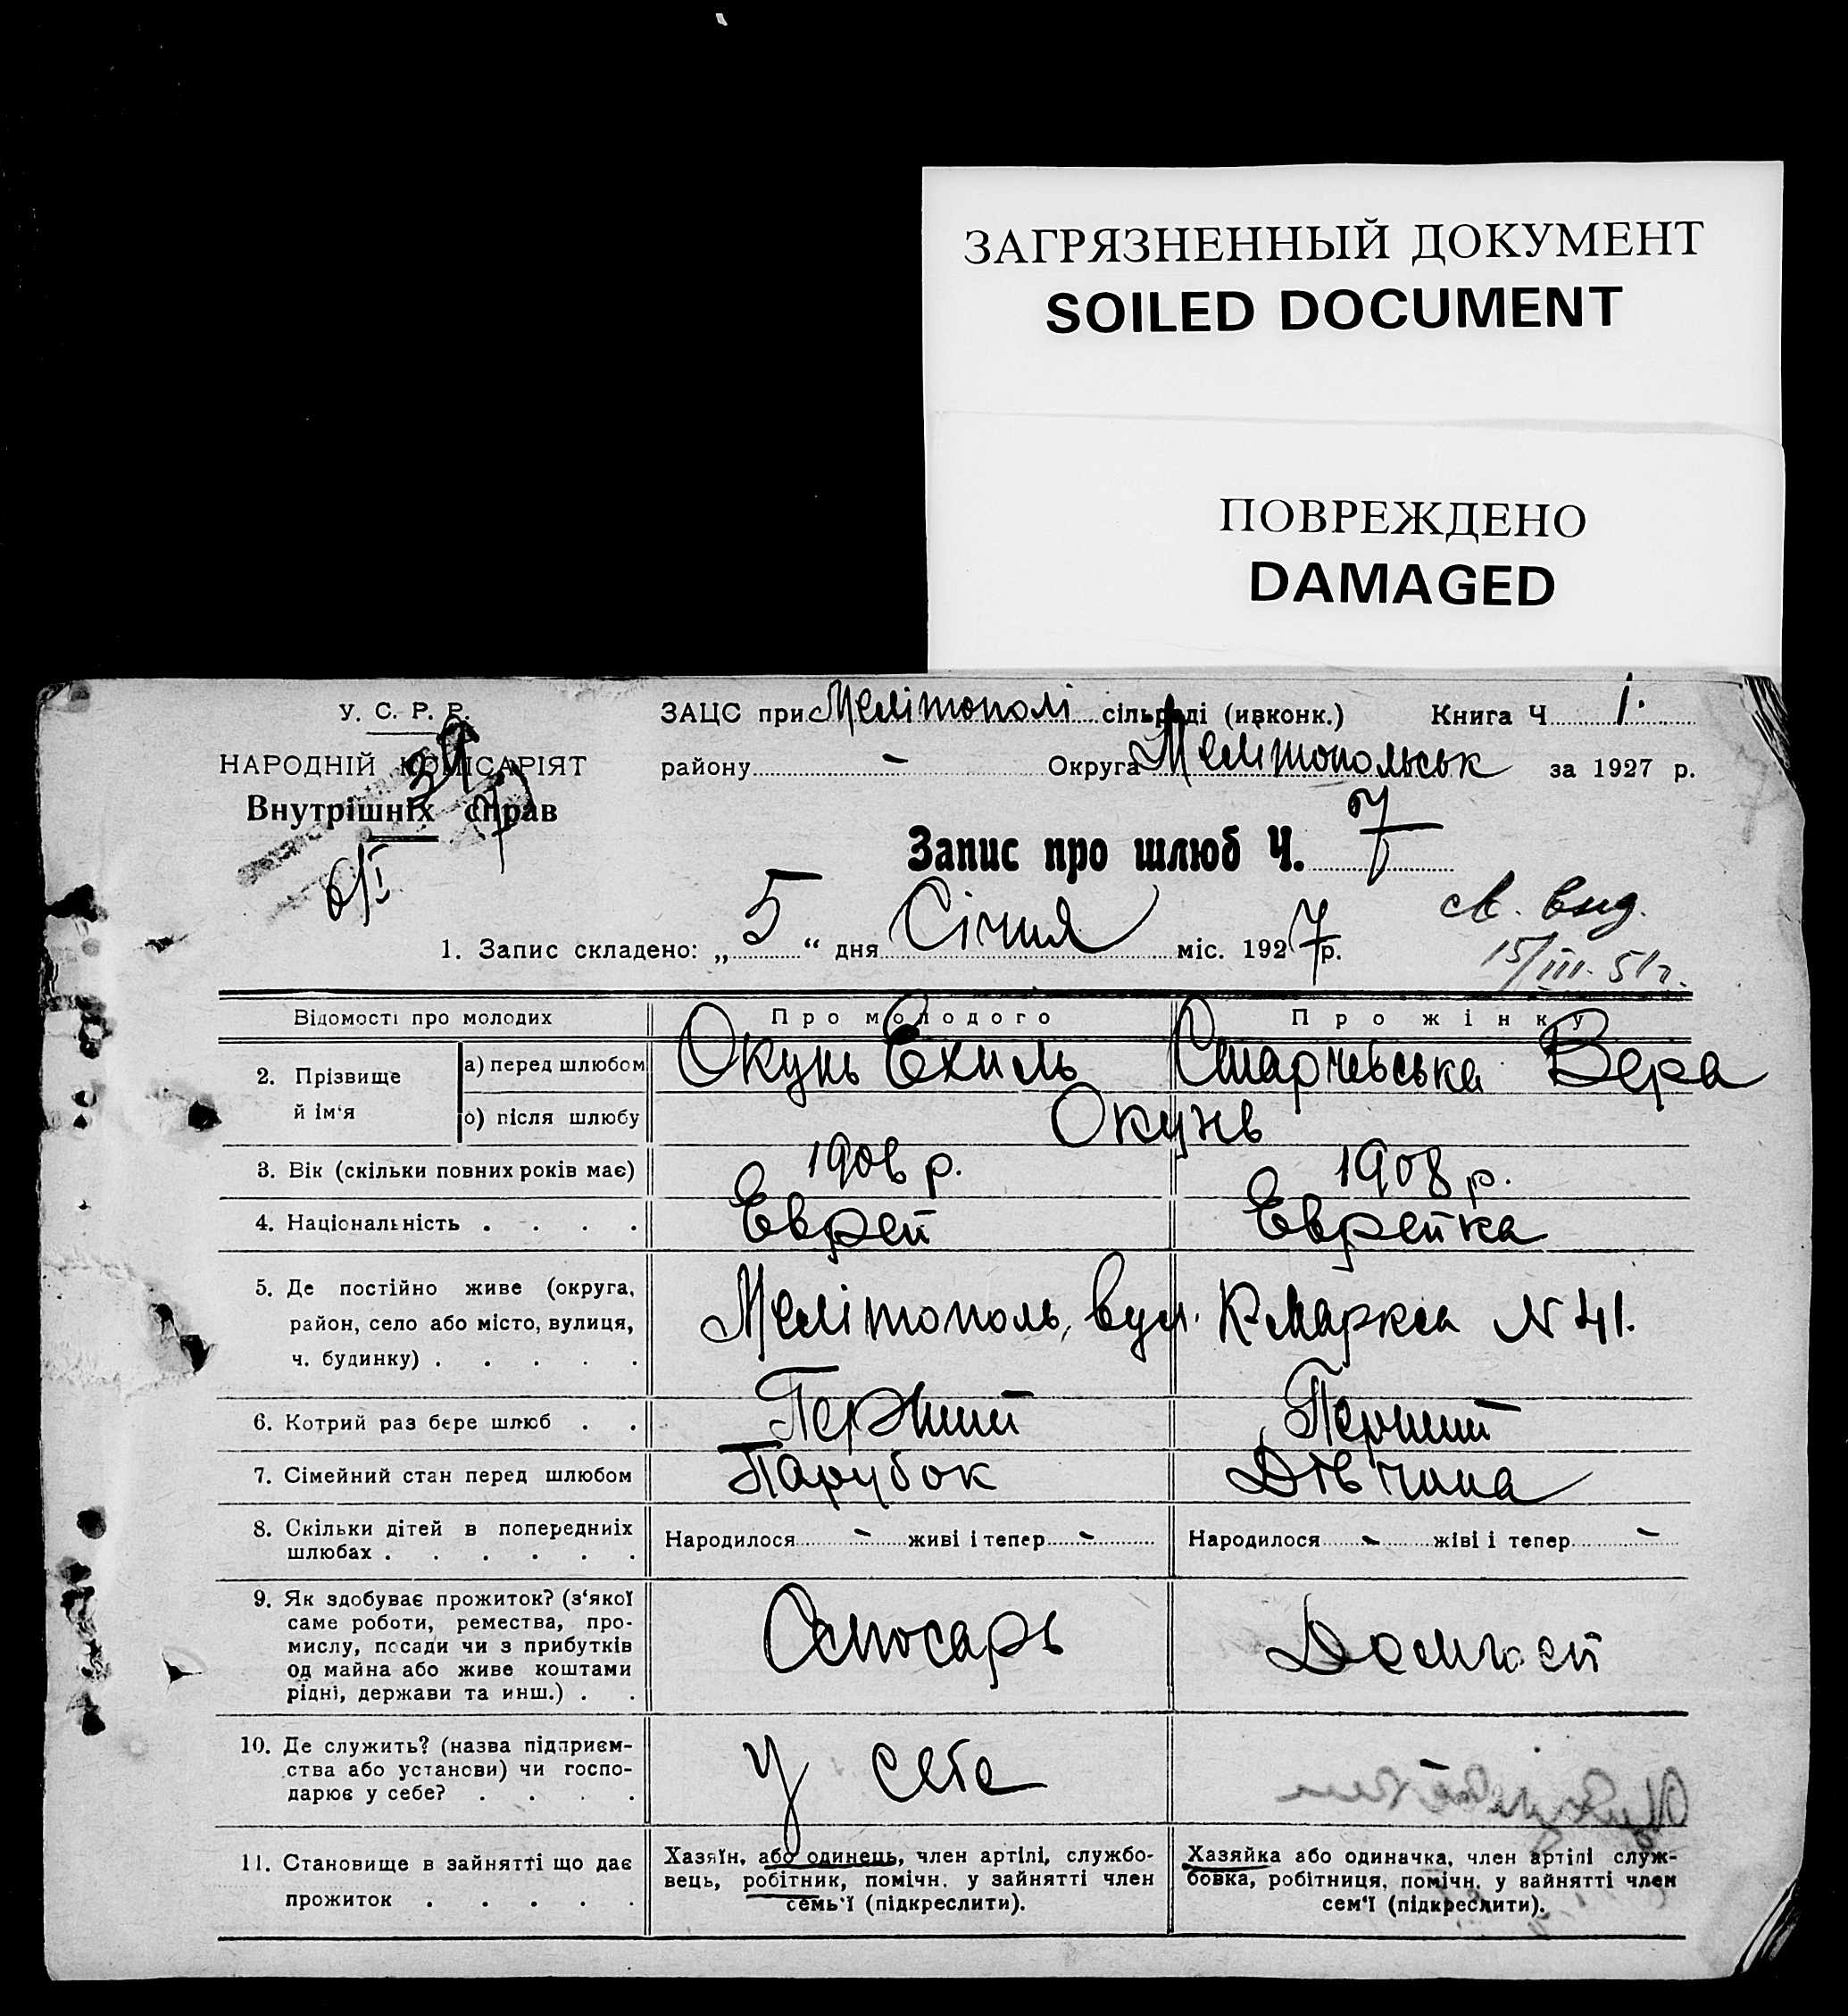 ЗАГРЯЗНЕННЫЙ ДОКУМЕНТ
SOILED DOCUMENT
ПОВРЕЖДЕНО
DAMAGED
У. С. Р. Р.
НАРОДНІЙ КОМІСАРІЯТ
Внутрішніх справ
ЗАЦС при Мелітополі сільраді (ивконк.) Книга Ч 1.
району - Округа Мелітопольськ за 1927 р.
Запис про шлюб Ч. 7
6/I
1. Запис складено: „5“ дня Січня міс. 1927 р.
св. выд.
15/III. 51 г.
Відомості про молодих Про молодого Про жінку
2. Прізвище й ім‘я а) перед шлюбом Окунь Ехиль Старчевська Вера
о) після шлюбу Окунь
3. Вік (скільки повних років має) 1906 р. 1908 р.
4. Національність . . . . Еврей Еврейка
5. Де постійно живе (округа,
район, село або місто, вулиця,
ч. будинку) . . . . .
Мелітополь, вул. К-Маркса N 41.
6. Котрий раз бере шлюб . . Перший Перший
7. Сімейний стан перед шлюбом Парубок Дівчина
8. Скільки дітей в попередниіх
шлюбах . . . . . .
Народилося - живі і тепер - Народилося - жіві і тепер -
9. Як здобуває прожиток? (з‘якої
саме роботи, ремества, про-
мислу, посади чи з прибутків
од майна або живе коштами
рідні, держави та инш.) . .
Слюсарь
10. Де служить? (назва підприєм-
ства або установи) чи госпо-
дарює у себе? . . . .
у себе
11. Становище в зайнятті що дає
прожиток . . . . .
Хазяїн, або одинець, член артілі, службо-
вець, робітник, помічн. у зайнятті член
семь‘ї (підкреслити).
Хазяйка або одиначка, член артілі служ-
бовка, робітниця, помічн. у зайнятті член
сем‘ї (підкреслити).